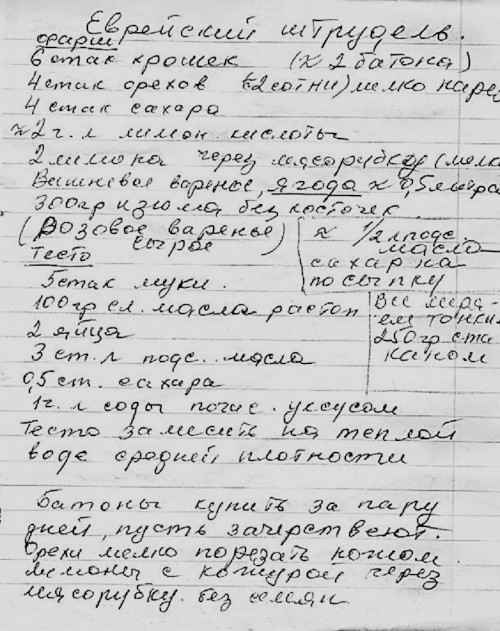 Еврейский штрудель.
фарш
6 стак крошек (≈ 2 батона)
4 стак орехов (≈2 сотни) мелко нарез
4 стак сахара
≈ 2 ч. л лимон. кислоты
2 лимона через мясорубку (мелк
Вишневое варенье, ягода ≈ 0,5 литра
300 гр изюма без косточек
(Розовое варенье)
сырое
≈ 1/2 л подс.
масла
сахар на
посыпку
Тесто
5 стак муки.
100 гр сл. масла растоп
2 яйца
3 ст. л подс. масла
0,5 ст. сахара
1 ч. л соды погас. уксусом
Все мера-
ем тонким
250 гр ста
каном
Тесто замесить на теплой
воде средней плотности
Батоны купить за пару
дней, пусть зачерствеют.
Орехи мелко порезать ножом
лимоны с кожурой через
мясорубку без семян